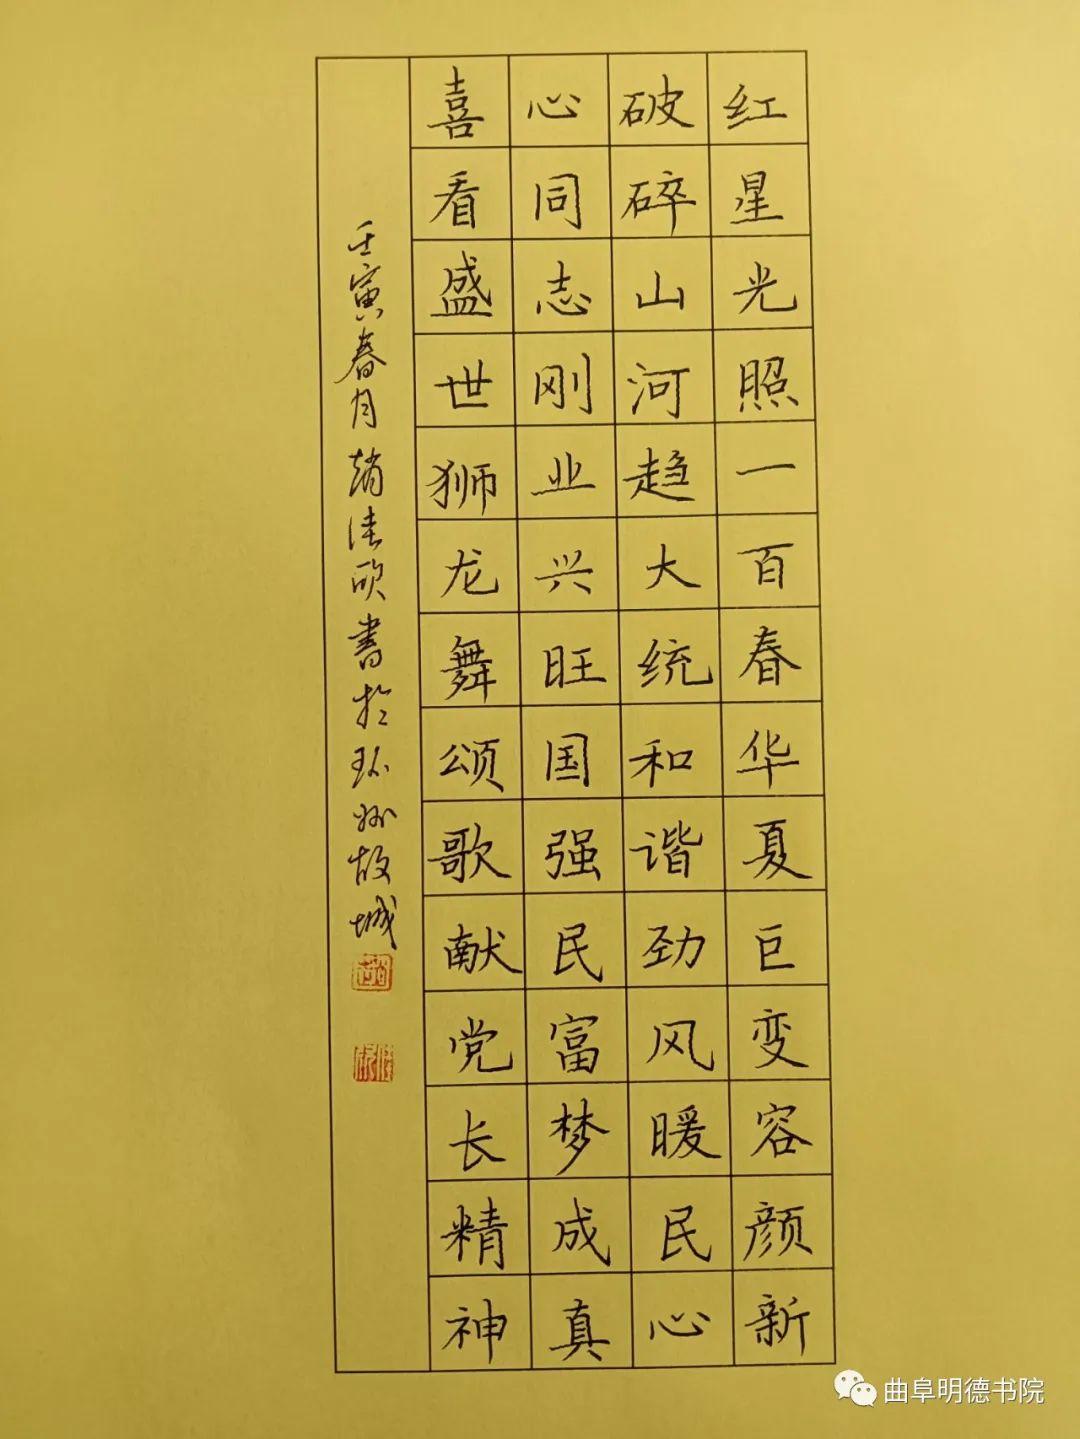 红星光照一百春华夏巨变容颜新
破碎山河趋大统和谐劲风暖民心
心同志刚业兴旺国强民富梦成真
喜看盛世狮龙舞颂歌献党长精神
壬寅春月赵佳欣书於环州故城
曲阜明德书院